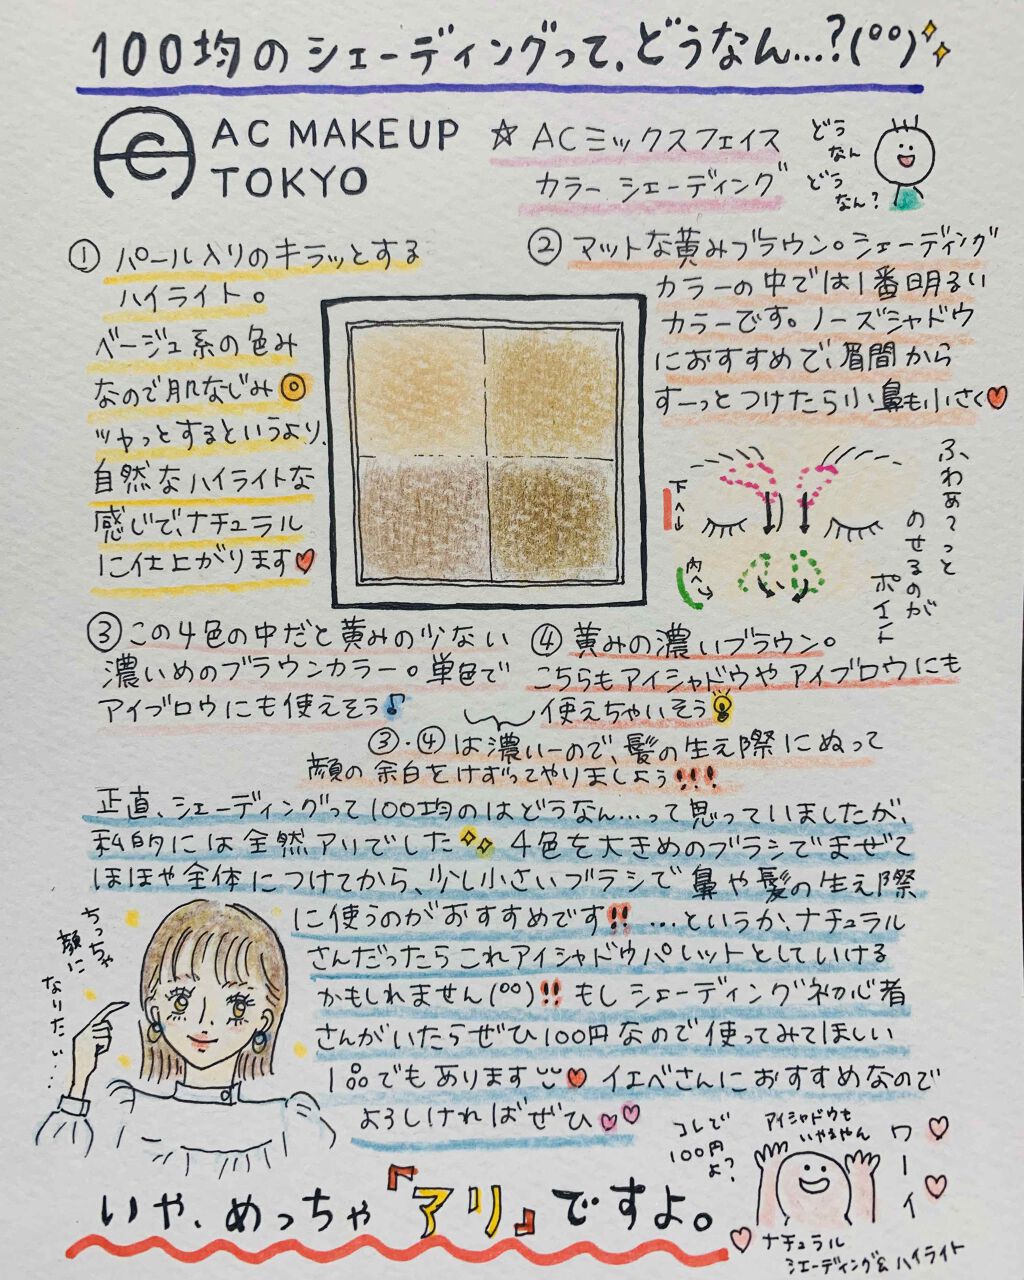 100均のシェーディングって、どうなん…?(°°)
AC MAKEUP
TOKYO
☆ACミックスフェイス
カラー シェーディング
どう
なん
どう
なん?
① パール入りのキラッとする
ハイライト。
ベージュ系の色み
なので肌なじみ◎
ツヤっとするというより、
自然なハイライトな
感じで、ナチュラル
に仕上がります♥
② マットな黄みブラウン。シェーディング
カラーの中では1番明るい
カラーです。ノーズシャドウ
におすすめで、眉間から
すーっとつけたら小鼻も小さく♥
下へ↓
内へ
ふわぁ〜っと
のせるのが
ポイント
③ この4色の中だと黄みの少ない
濃いめのブラウンカラー。単色で
アイブロウにも使えそう♪
④ 黄みの濃いブラウン。
こちらもアイシャドウやアイブロウにも
使えちゃいそう
③・④は濃いーので、髪の生え際にぬって
顔の余白をけずってやりましょう!!!
正直、シェーディングって100均のはどうなん…って思っていましたが、
私的には全然アリでした 4色を大きめのブラシでまぜて
ほほや全体につけてから、少し小さいブラシで鼻や髪の生え際
に使うのがおすすめです!! …というか、ナチュラル
さんだったらこれアイシャドウパレットとしていける
かもしれません(°°)!! もしシェーディング初心者
さんがいたらぜひ100円なので使ってみてほしい
1品でもあります♥ イエベさんにおすすめなので
よろしければぜひ♡♡
ちっちゃ
顔に
なりたい…
コレで
100円
よ?
アイシャドウも
いやまやん
ワーイ
いや、めっちゃ『アリ』ですよ。
ナチュラル
シェーディング& ハイライト